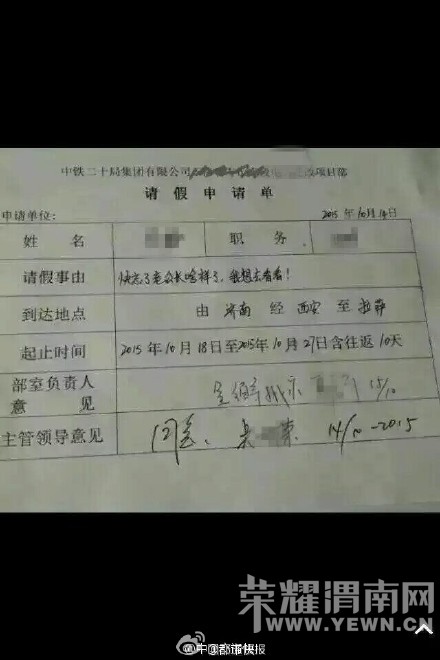 中铁二十局集团有限公司 改项目部
请假申请单
申请单位： 2015年10月14日
姓名 职务
请假事由 快忘了老公长啥样了，我想去看看！
到达地点 由 济南 经 西安 至 拉萨
起止时间 2015年10月18日至2015年10月27日含往返10天
部室负责人意见 呈领导批示 15/10
主管领导意见 同意. 14/10-2015
荣耀渭南网
WWW.YEWN.CN
@都市快报